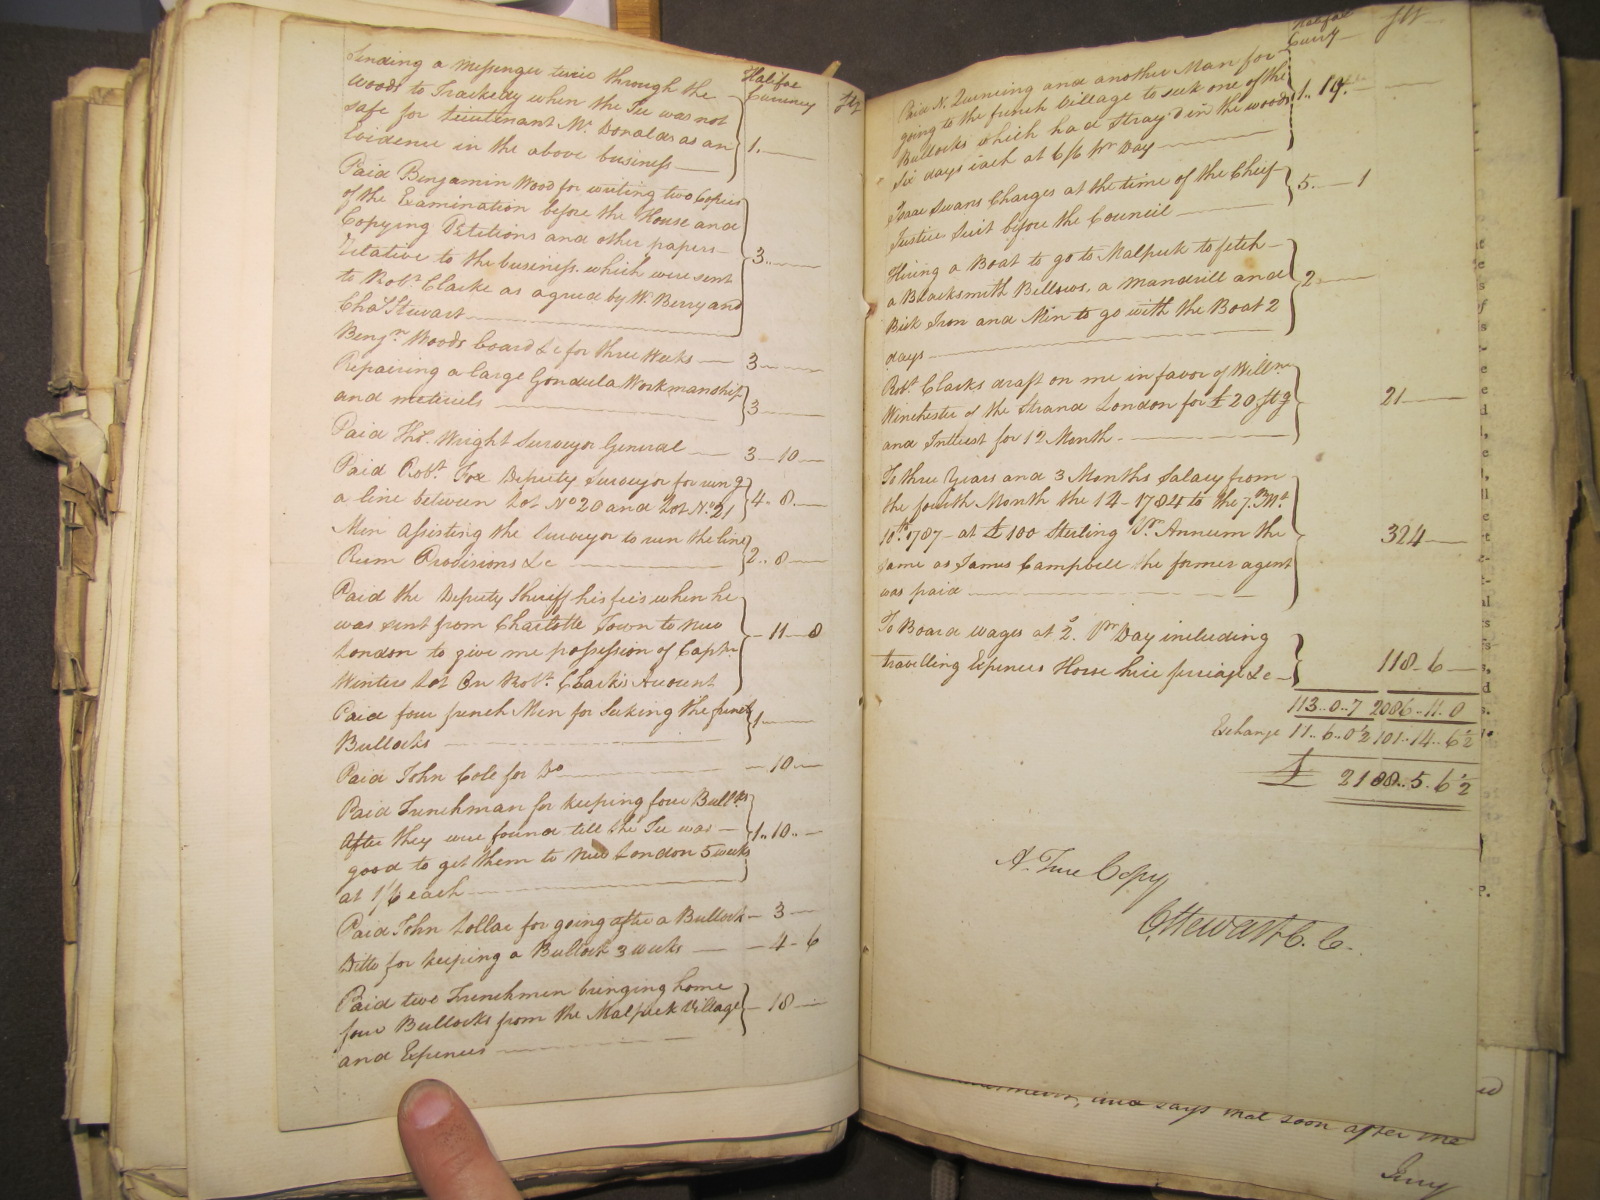 Halifax
Currency
Stg
Sending a Messenger twice through the
Woods to Trackedy when the Ice was not
safe for Lieutenant Mc. Donald as an
Evidence in the above business — 1. —
Paid Benjamin Wood for writing two Copies
of the Examination before the House and
Copying Petitions and other papers
Relative to the business which were sent
to Robt. Clarke as agreed by W. Berry and
Chas. Stewart — 3. —
Benjn. Woods board &c for three Weeks — 3 —
Repairing a large Gondula Workmanship
and meterials — 3 —
Paid Thos. Wright Surveyor General — 3 — 10 —
Paid Robt. Fox Deputy Surveyor for rung
a line between Lot No. 20 and Lot No. 21 4 - 8 —
Men assisting the Surveyor to run the line
Rum Provisions &c — 2 .. 8 —
Paid the Deputy Sheriff his fees when he
was sent from Charlotte Town to New
London to give me possession of Captn.
Winters Lot On Robt. Clark's Account — 11 — 8
Paid four french Men for Seeking the
Bullocks — 1 —
Paid John Cole for Do. — 10 —
Paid Frenchman for keeping four Bullks
After they were found till the Ice was —
good to get them to New London 5 weeks
at 1/6 each — 1 .. 10 .. —
Paid John Lollar for going after a Bullock — 3 —
Ditto for keeping a Bullock 3 weeks — — 4 - 6
Paid two Frenchmen bringing home
four Bullocks from the Malpeck Village
and Expences — — 18 —
Halifax
Curry
Stg
Paid N. and another Man for
going to the french Village to seek one of the
Bullocks which had Stray'd in the woods
six days each at 6/6 pr Day — 1 .. 19. —
Isaac Swans Charges at the time of the Cheif
Justice Suit before the Council — 5 .. — 1
Hiring a Boat to go to Malpeck to fetch
a Blacksmith Bellows, a mandrill and
Bick Iron and Men to go with the Boat 2
days — 2 —
Robt. Clarks draft on me in favor of Willm
Winchester of the Strand London for £20 Stg
and Intrest for 12 Month — 21 —
To three Years and 3 Months Salary from
the fourth Month the 14 - 1784 to the 7th. Mt.
10th. 1787 — at £100 Sterling Pr. Annum the
same as James Campbell the former agent
was paid — 324 —
To Board wages at 2/. Pr Day including
travelling Expences Horse hire &c — 118 - 6 —
113 .. 0 .. 7 2086 .. 11 .. 0
Exchange 11 .. 6 .. 0½ 101 .. 14 .. 6½
£ 2188 .. 5 . 6½
A. True Copy
CStewart C. C.
and says that soon after the